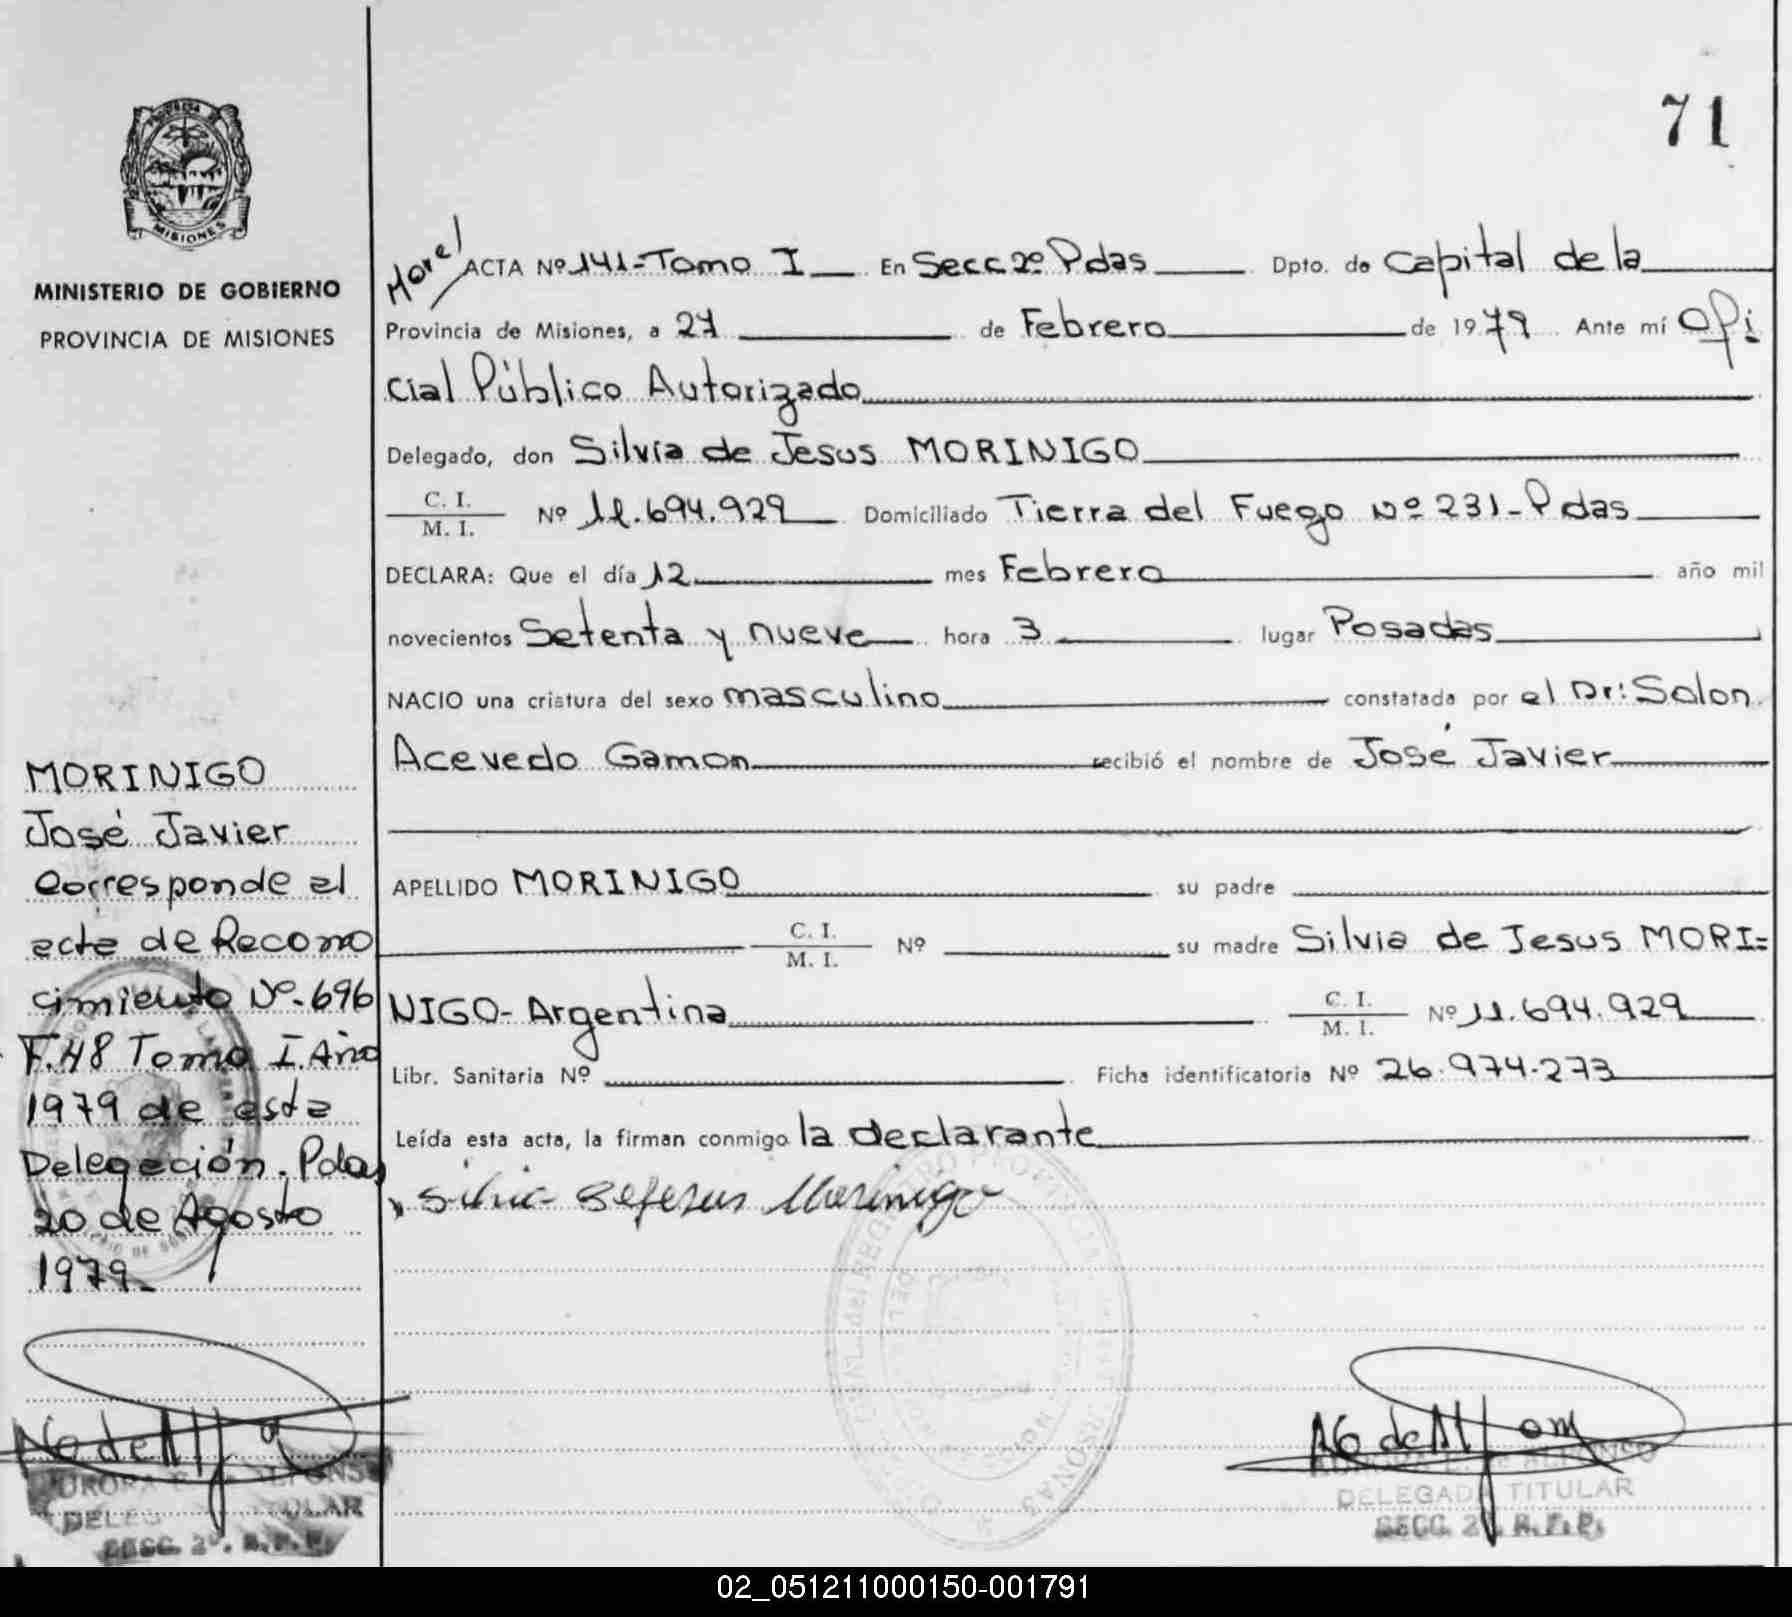 71
MISIONES
MINISTERIO DE GOBIERNO
PROVINCIA DE MISIONES
MORINIGO
José Javier
Corresponde al
acta de Recono
cimiento Nº-696
F.48 Tomo I. Año
1979 de esta
Delegación. Pdas
20 de Agosto
1979-
DELEG TITULAR
SECC. 2º. R.P.P.
Morel
ACTA Nº 141-Tomo I En Secc 2º Pdas Dpto. de Capital de la
Provincia de Misiones, a 27 de Febrero de 1979 Ante mí Ofi
cial Público Autorizado
Delegado, don Silvia de Jesus MORINIGO
C. I.
M. I. Nº 11.694.929 Domiciliado Tierra del Fuego Nº 231-Pdas
DECLARA: Que el día 12 mes Febrero año mil
novecientos Setenta y nueve hora 3 lugar Posadas
NACIO una criatura del sexo masculino constatada por el Dr: Solon
Acevedo Gamon recibió el nombre de José Javier
APELLIDO MORINIGO su padre
C. I.
M. I. Nº su madre Silvia de Jesus MORI=
NIGO- Argentina C. I.
M. I. Nº 11.694.929
Libr. Sanitaria Nº Ficha identificatoria Nº 26.974.273
Leída esta acta, la firman conmigo la declarante
Silvia de Jesus Morinigo
AURORA E. de ALFONSO
DELEGADA TITULAR
SECC. 2º. R.P.P.
02_051211000150-001791